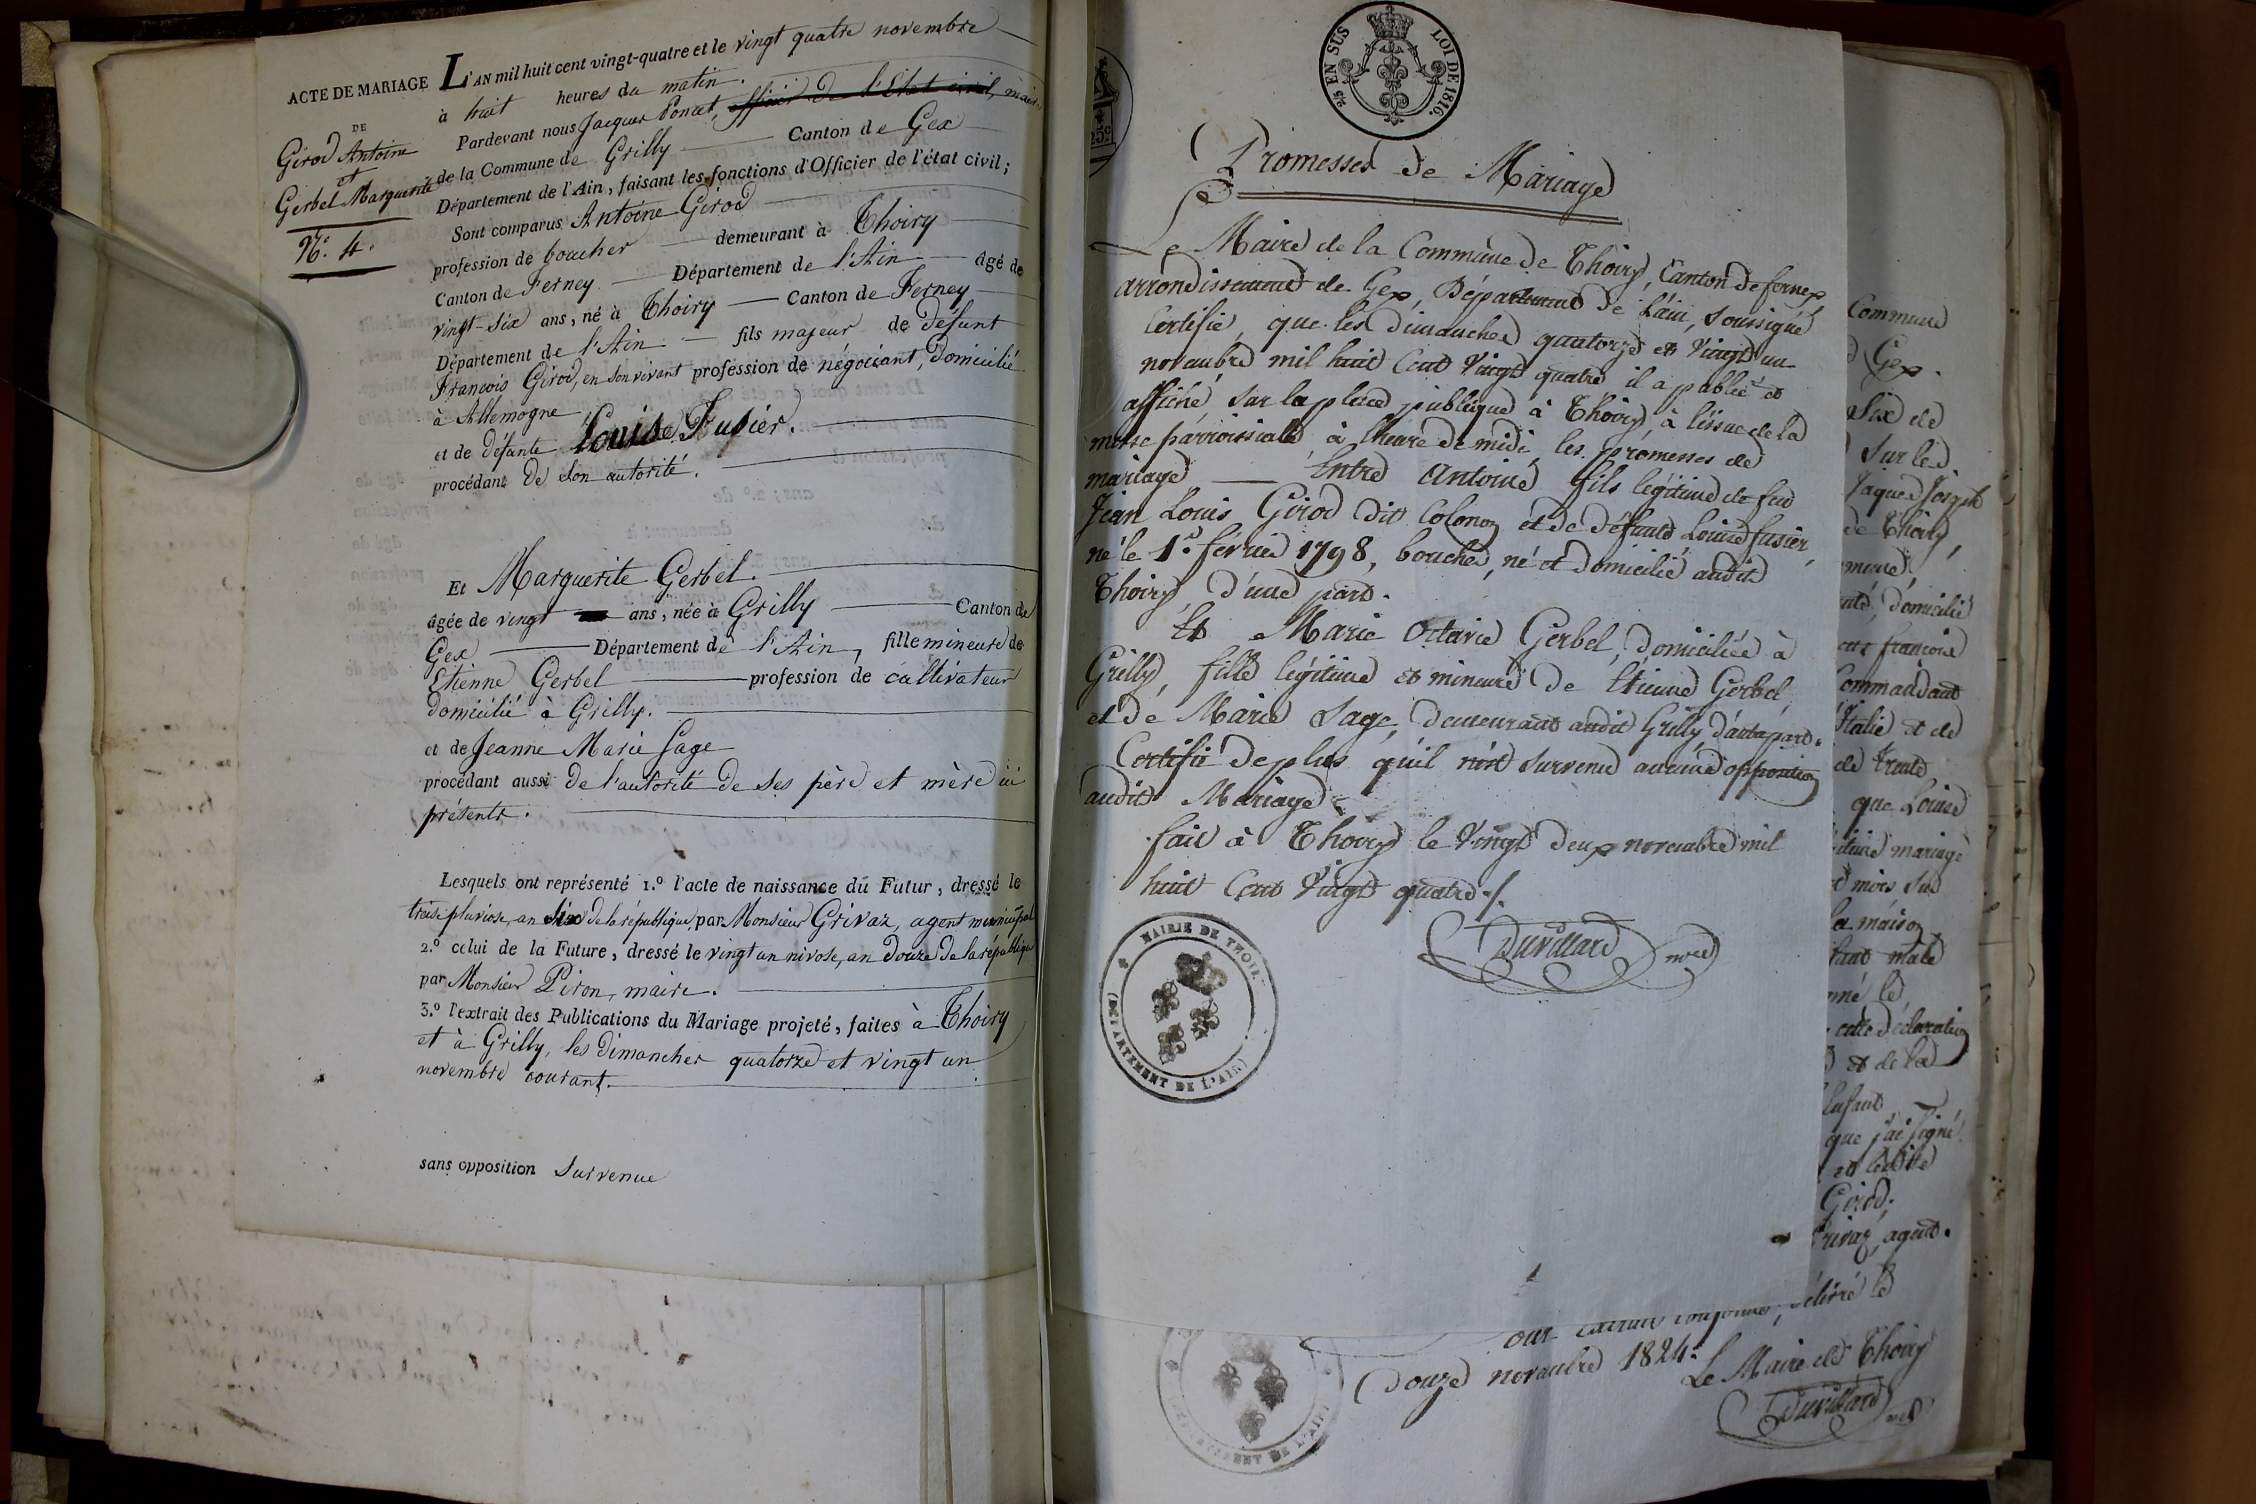 ACTE DE MARIAGE
DE
Girod Antoine
et
Gerbel Marguerite
N.º 4.
L'AN mil huit cent vingt-quatre et le vingt quatre novembre
à huit heures du matin.
Pardevant nous Jacques Poncet, officier de l'Etat civil, maire
de la Commune de Grilly Canton de Gex
Département de l'Ain, faisant les fonctions d'Officier de l'état civil;
Sont comparus Antoine Girod
profession de boucher demeurant à Thoiry
Canton de Ferney Département de l'Ain âgé de
vingt-six ans, né à Thoiry Canton de Ferney
Département de l'Ain fils majeur de défunt
François Girod, en son vivant profession de négociant, domicilié
à Allemogne
et de défante Louise Fusier.
procédant de son autorité.
Et Marguerite Gerbel.
âgée de vingt ans, née à Grilly Canton de
Gex Département de l'Ain, fille mineure de
Etienne Gerbel profession de cultivateur
domicilié à Grilly.
et de Jeanne Marie Sage
procédant aussi de l'autorité de ses père et mère ici
présents.
Lesquels ont représenté 1.º l'acte de naissance du Futur, dressé le
treise pluviose, an six de la république, par Monsieur Grivaz, agent municipal
2.º celui de la Future, dressé le vingt un nivose, an douze de la république
par Monsieur Piron, maire.
3.º l'extrait des Publications du Mariage projeté, faites à Thoiry
et à Grilly, les dimanches quatorze et vingt un
novembre courant.
sans opposition survenue
25 EN SUS LOI DE 1816.
25c
Promesses de Mariage
Le Maire de la Commune de Thoiry, Canton de ferney
arrondissement de Gex, Département de l'ain, soussigné
Certifie, que les dimanches quatorze et vingt un
novembre mil huit Cent vingt quatre il a publié et
affiché, sur la place publique à Thoiry à l'issue de la
messe parroissiale à l'heure de midi, les promesses de
mariage Entre Antoine fils légitime de feu
Jean Louis Girod dit Colonoz et de défunte Louise fusier,
né le 1.er février 1798, boucher, né et domicilié audit
Thoiry d'une part.
Et Marie Octavie Gerbel, domiciliée à
Grilly, fille légitime et mineure de Etienne Gerbel,
et de Marie Sage, demeurant audit Grilly d'autre part.
Certifie de plus qu'il n'est survenu aucune opposition
audit Mariage
fait à Thoiry le vingt deux novembre mil
huit Cent vingt quatre ./.
Duvillard
MAIRIE DE THOIR.
(DEPARTEMENT DE L'AIN)
Commune
Gex.
six de
sur les
Jaques Joseph
de Thoiry,
domicilié
françois
Commandant
Italie et de
de trente
que Louise
mariage
mois sus
la maison
male
né le
cette déclaration
et de la
Enfant
que j'ai signé
Girod.
agent.
délivré le
Douze novembre 1824.
Le Maire de Thoiry
Duvillard